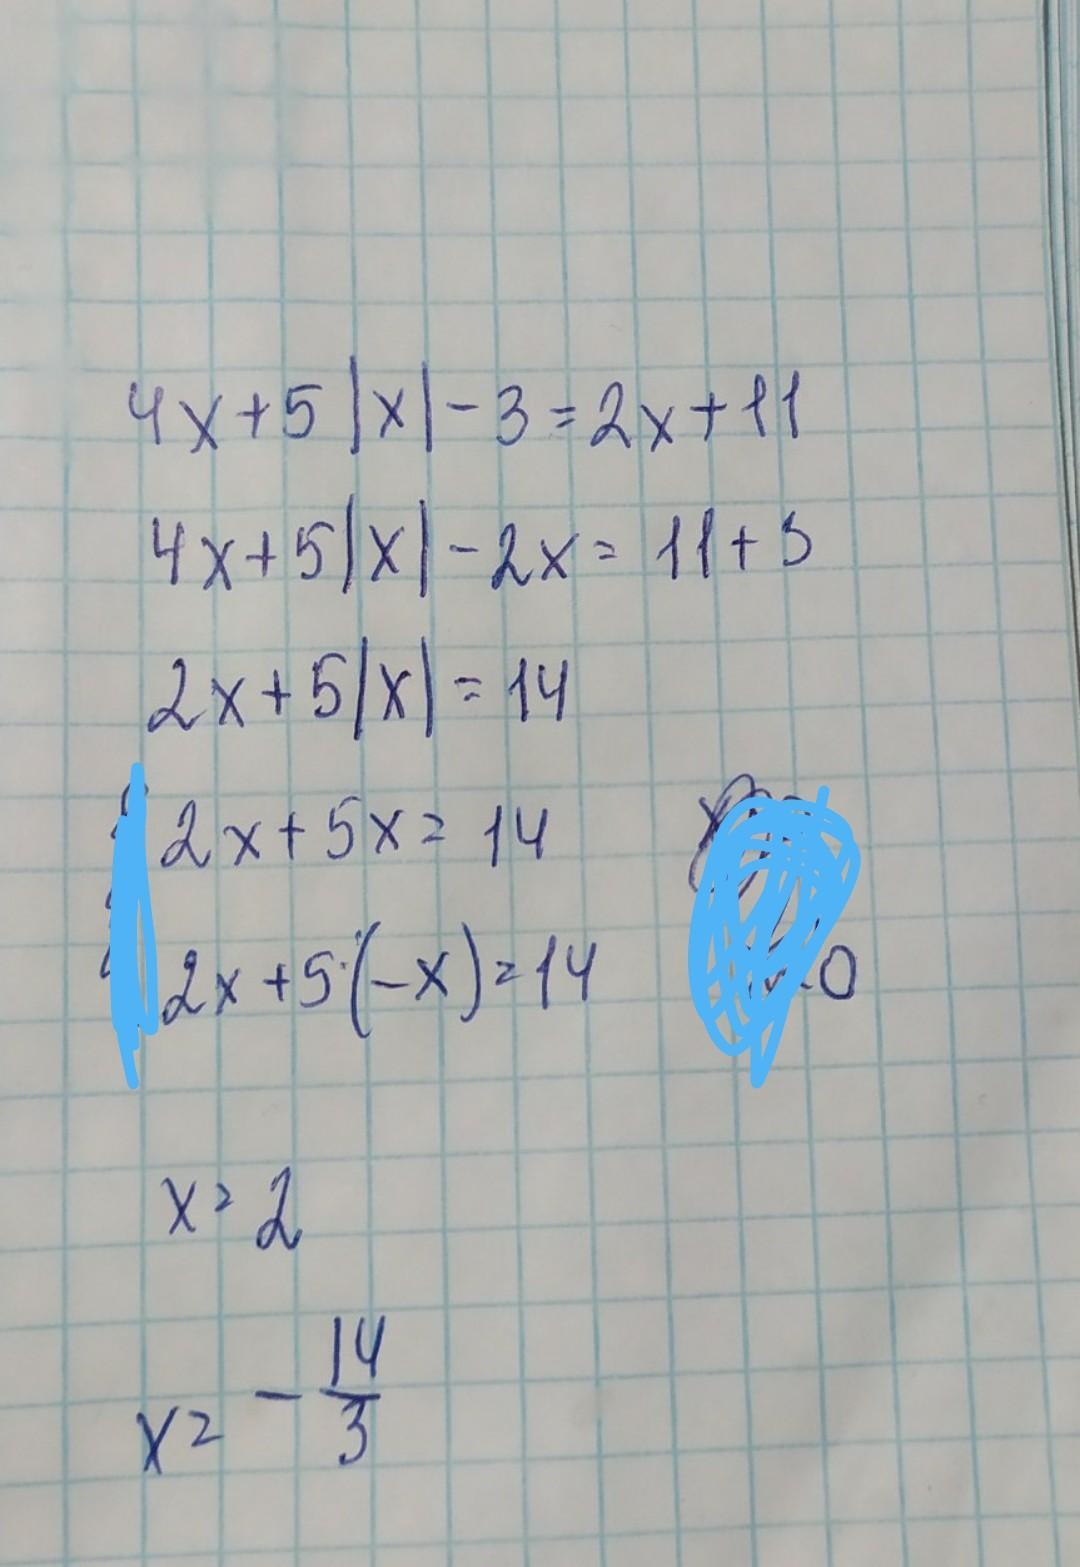 4x+5|x|-3=2x+11
4x+5|x|-2x=11+3
2x+5|x|=14
2x+5x=14
2x+5·(-x)=14 0
x=2
x=-14/3